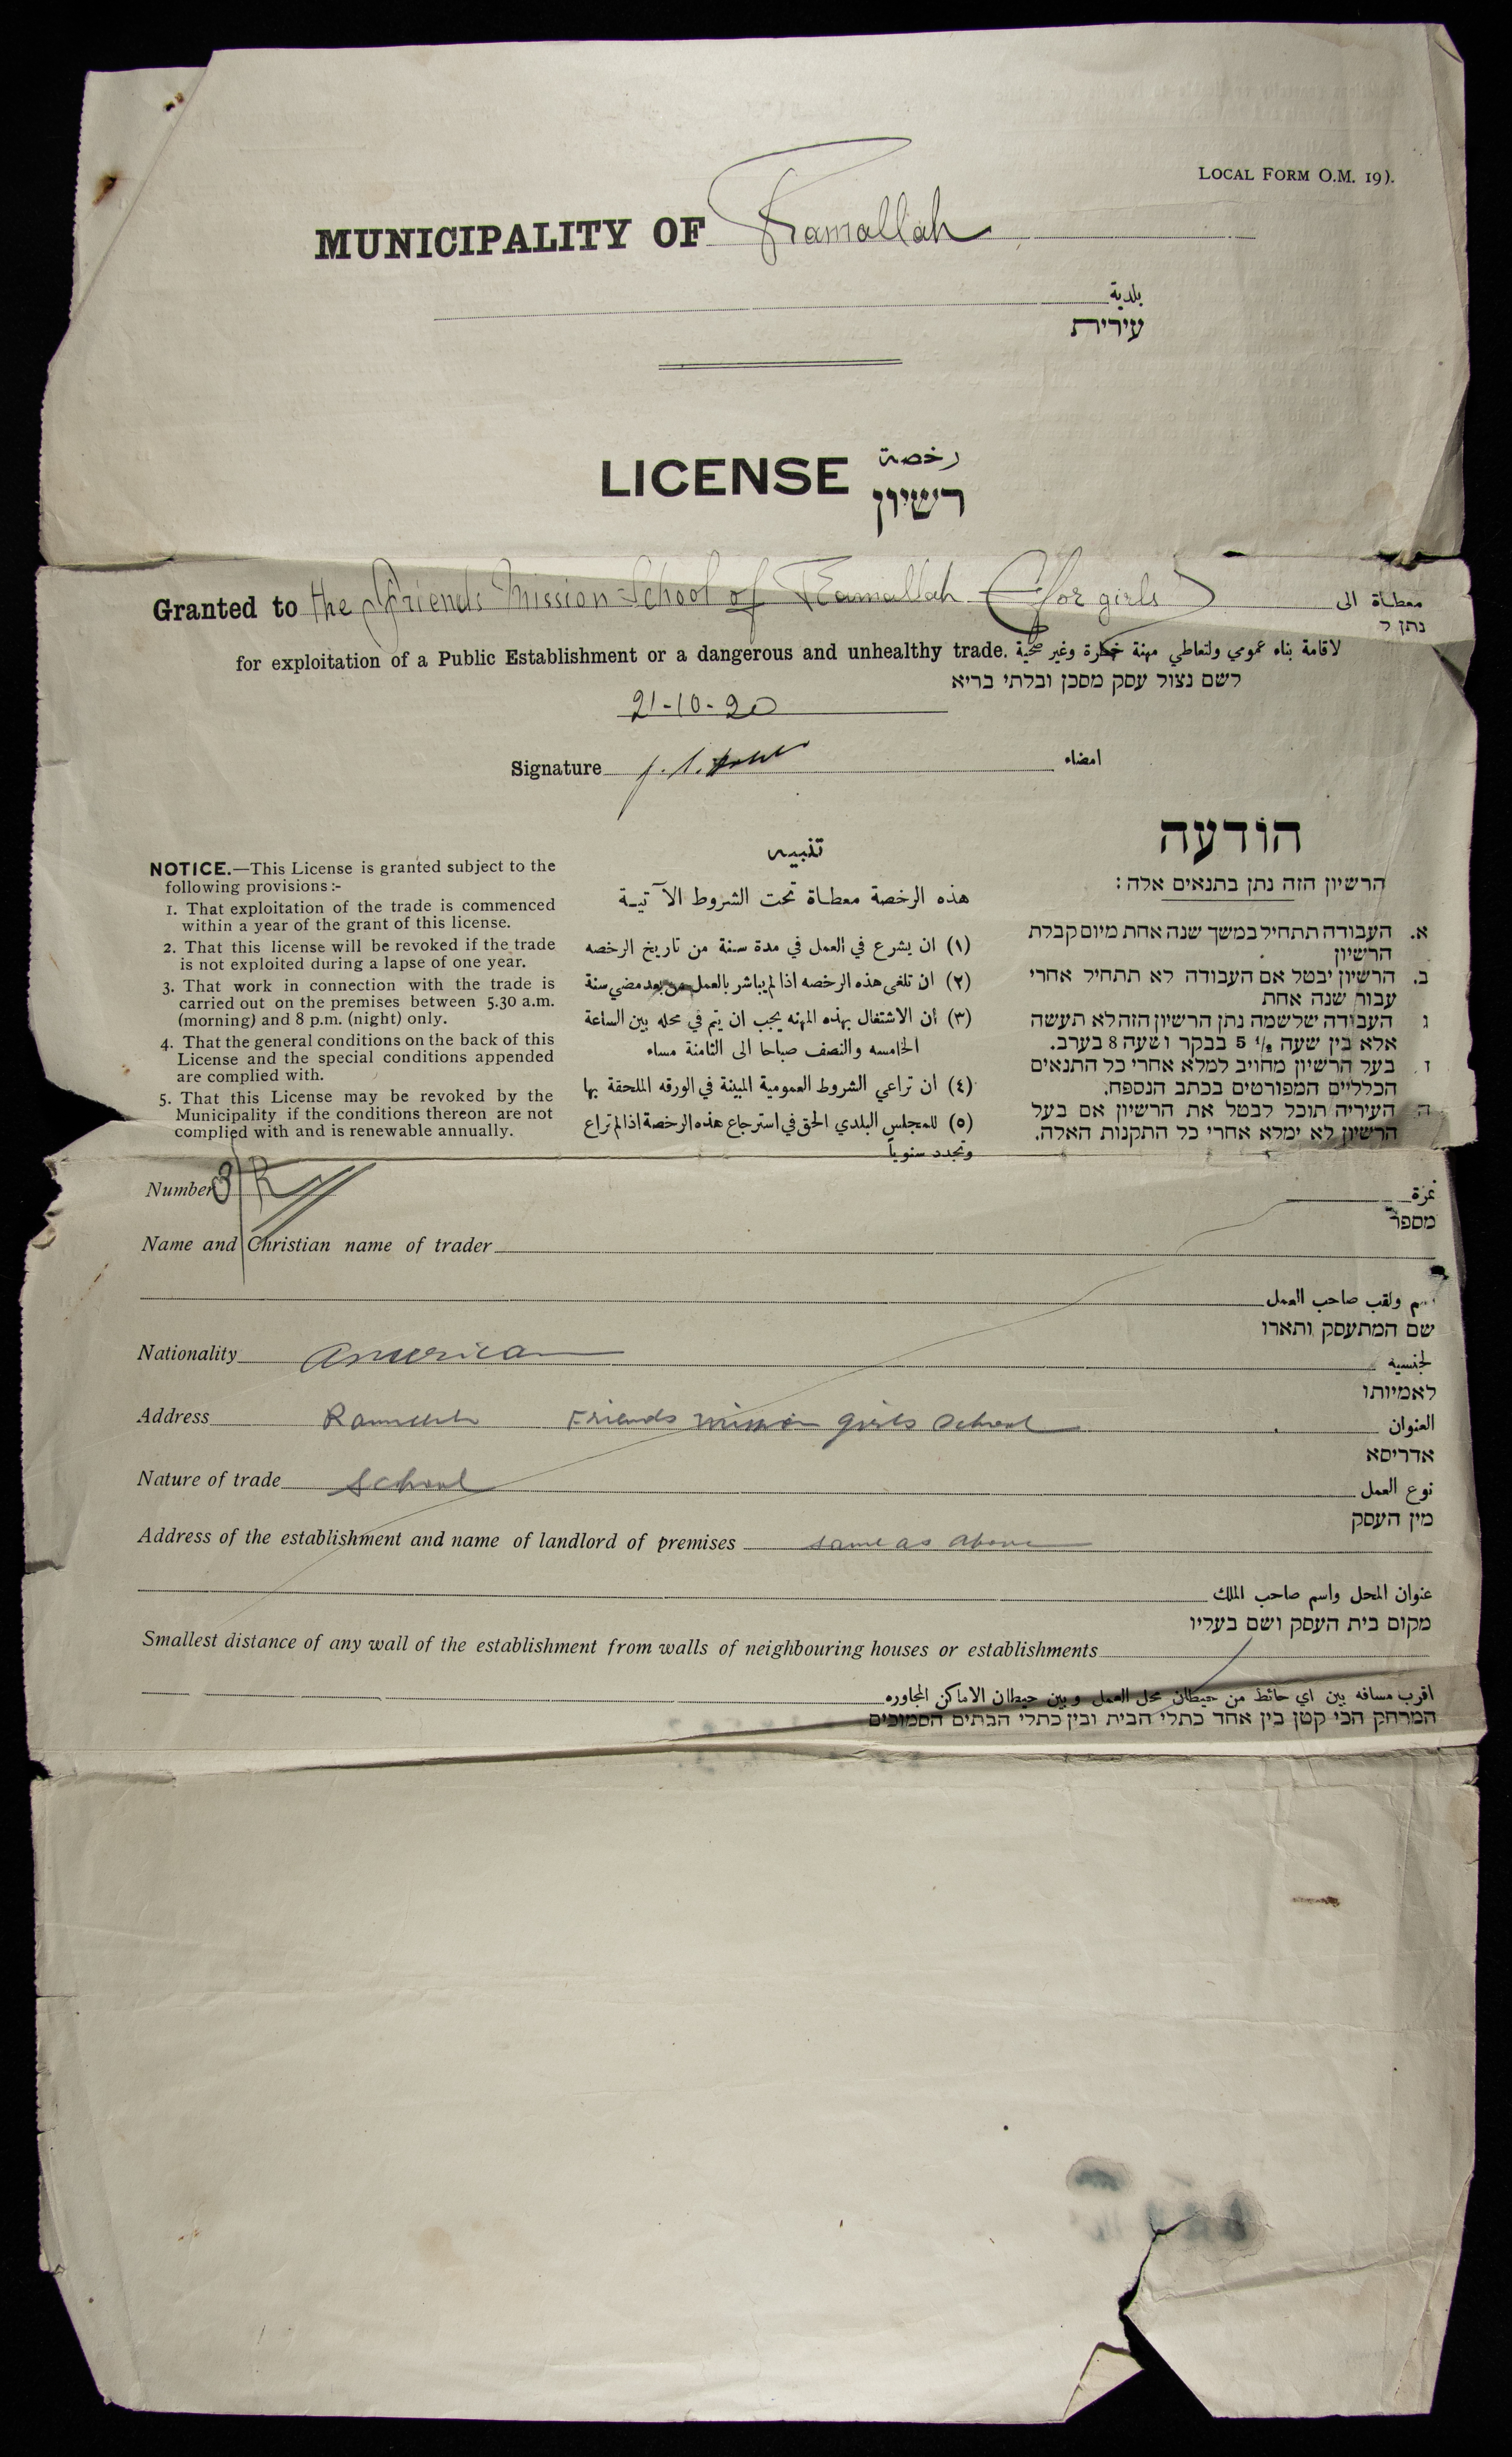 LOCAL FORM O.M. 19).
MUNICIPALITY OF Ramallah
بلدية
עירית
LICENSE رخصة
רשיון
Granted to the Friends Mission School of Ramallah (for girls) معطاة الى
נתן ל
for exploitation of a Public Establishment or a dangerous and unhealthy trade. لاقامة بناء عمومي ولتعاطي مهنة خطرة وغير صحية
לשם נצול עסק מסכן ובלתי בריא
21-10-20
Signature امضاء
NOTICE.—This License is granted subject to the
following provisions :-
1. That exploitation of the trade is commenced
within a year of the grant of this license.
2. That this license will be revoked if the trade
is not exploited during a lapse of one year.
3. That work in connection with the trade is
carried out on the premises between 5.30 a.m.
(morning) and 8 p.m. (night) only.
4. That the general conditions on the back of this
License and the special conditions appended
are complied with.
5. That this License may be revoked by the
Municipality if the conditions thereon are not
complied with and is renewable annually.
تنبيه
هذه الرخصة معطاة تحت الشروط الآتية
(١) ان يشرع في العمل في مدة سنة من تاريخ الرخصه
(٢) ان تلغى هذه الرخصه اذا لم يباشر بالعمل من بعد مضي سنة
(٣) ان الاشتغال بهذه المهنه يجب ان يتم في محله بين الساعة
الخامسه والنصف صباحا الى الثامنة مساء
(٤) ان تراعي الشروط العمومية المبينة في الورقه الملحقة بها
(٥) للمجلس البلدي الحق في استرجاع هذه الرخصة اذا لم تراع
وتجدد سنوياً
הודעה
הרשיון הזה נתן בתנאים אלה :
א. העבודה תתחיל במשך שנה אחת מיום קבלת
הרשיון
ב. הרשיון יבטל אם העבודה לא תתחיל אחרי
עבור שנה אחת
ג העבודה שלשמה נתן הרשיון הזה לא תעשה
אלא בין שעה 5 ½ בבקר ושעה 8 בערב.
ד. בעל הרשיון מחויב למלא אחרי כל התנאים
הכלליים המפורטים בכתב הנספח.
ה העיריה תוכל לבטל את הרשיון אם בעל
הרשיון לא ימלא אחרי כל התקנות האלה.
Number 3/R نمرة
מספר
Name and Christian name of trader
اسم ولقب صاحب العمل
שם המתעסק ותארו
Nationality American الجنسيه
לאמיותו
Address Ramallah Friends Mission Girls School العنوان
אדריסא
Nature of trade School نوع العمل
מין העסק
Address of the establishment and name of landlord of premises same as above
عنوان المحل واسم صاحب الملك
מקום בית העסק ושם בעליו
Smallest distance of any wall of the establishment from walls of neighbouring houses or establishments
اقرب مسافه بين اي حائط من حيطان محل العمل وبين حيطان الاماكن المجاوره
המרחק הכי קטן בין אחד כתלי הבית ובין כתלי הבתים הסמוכים